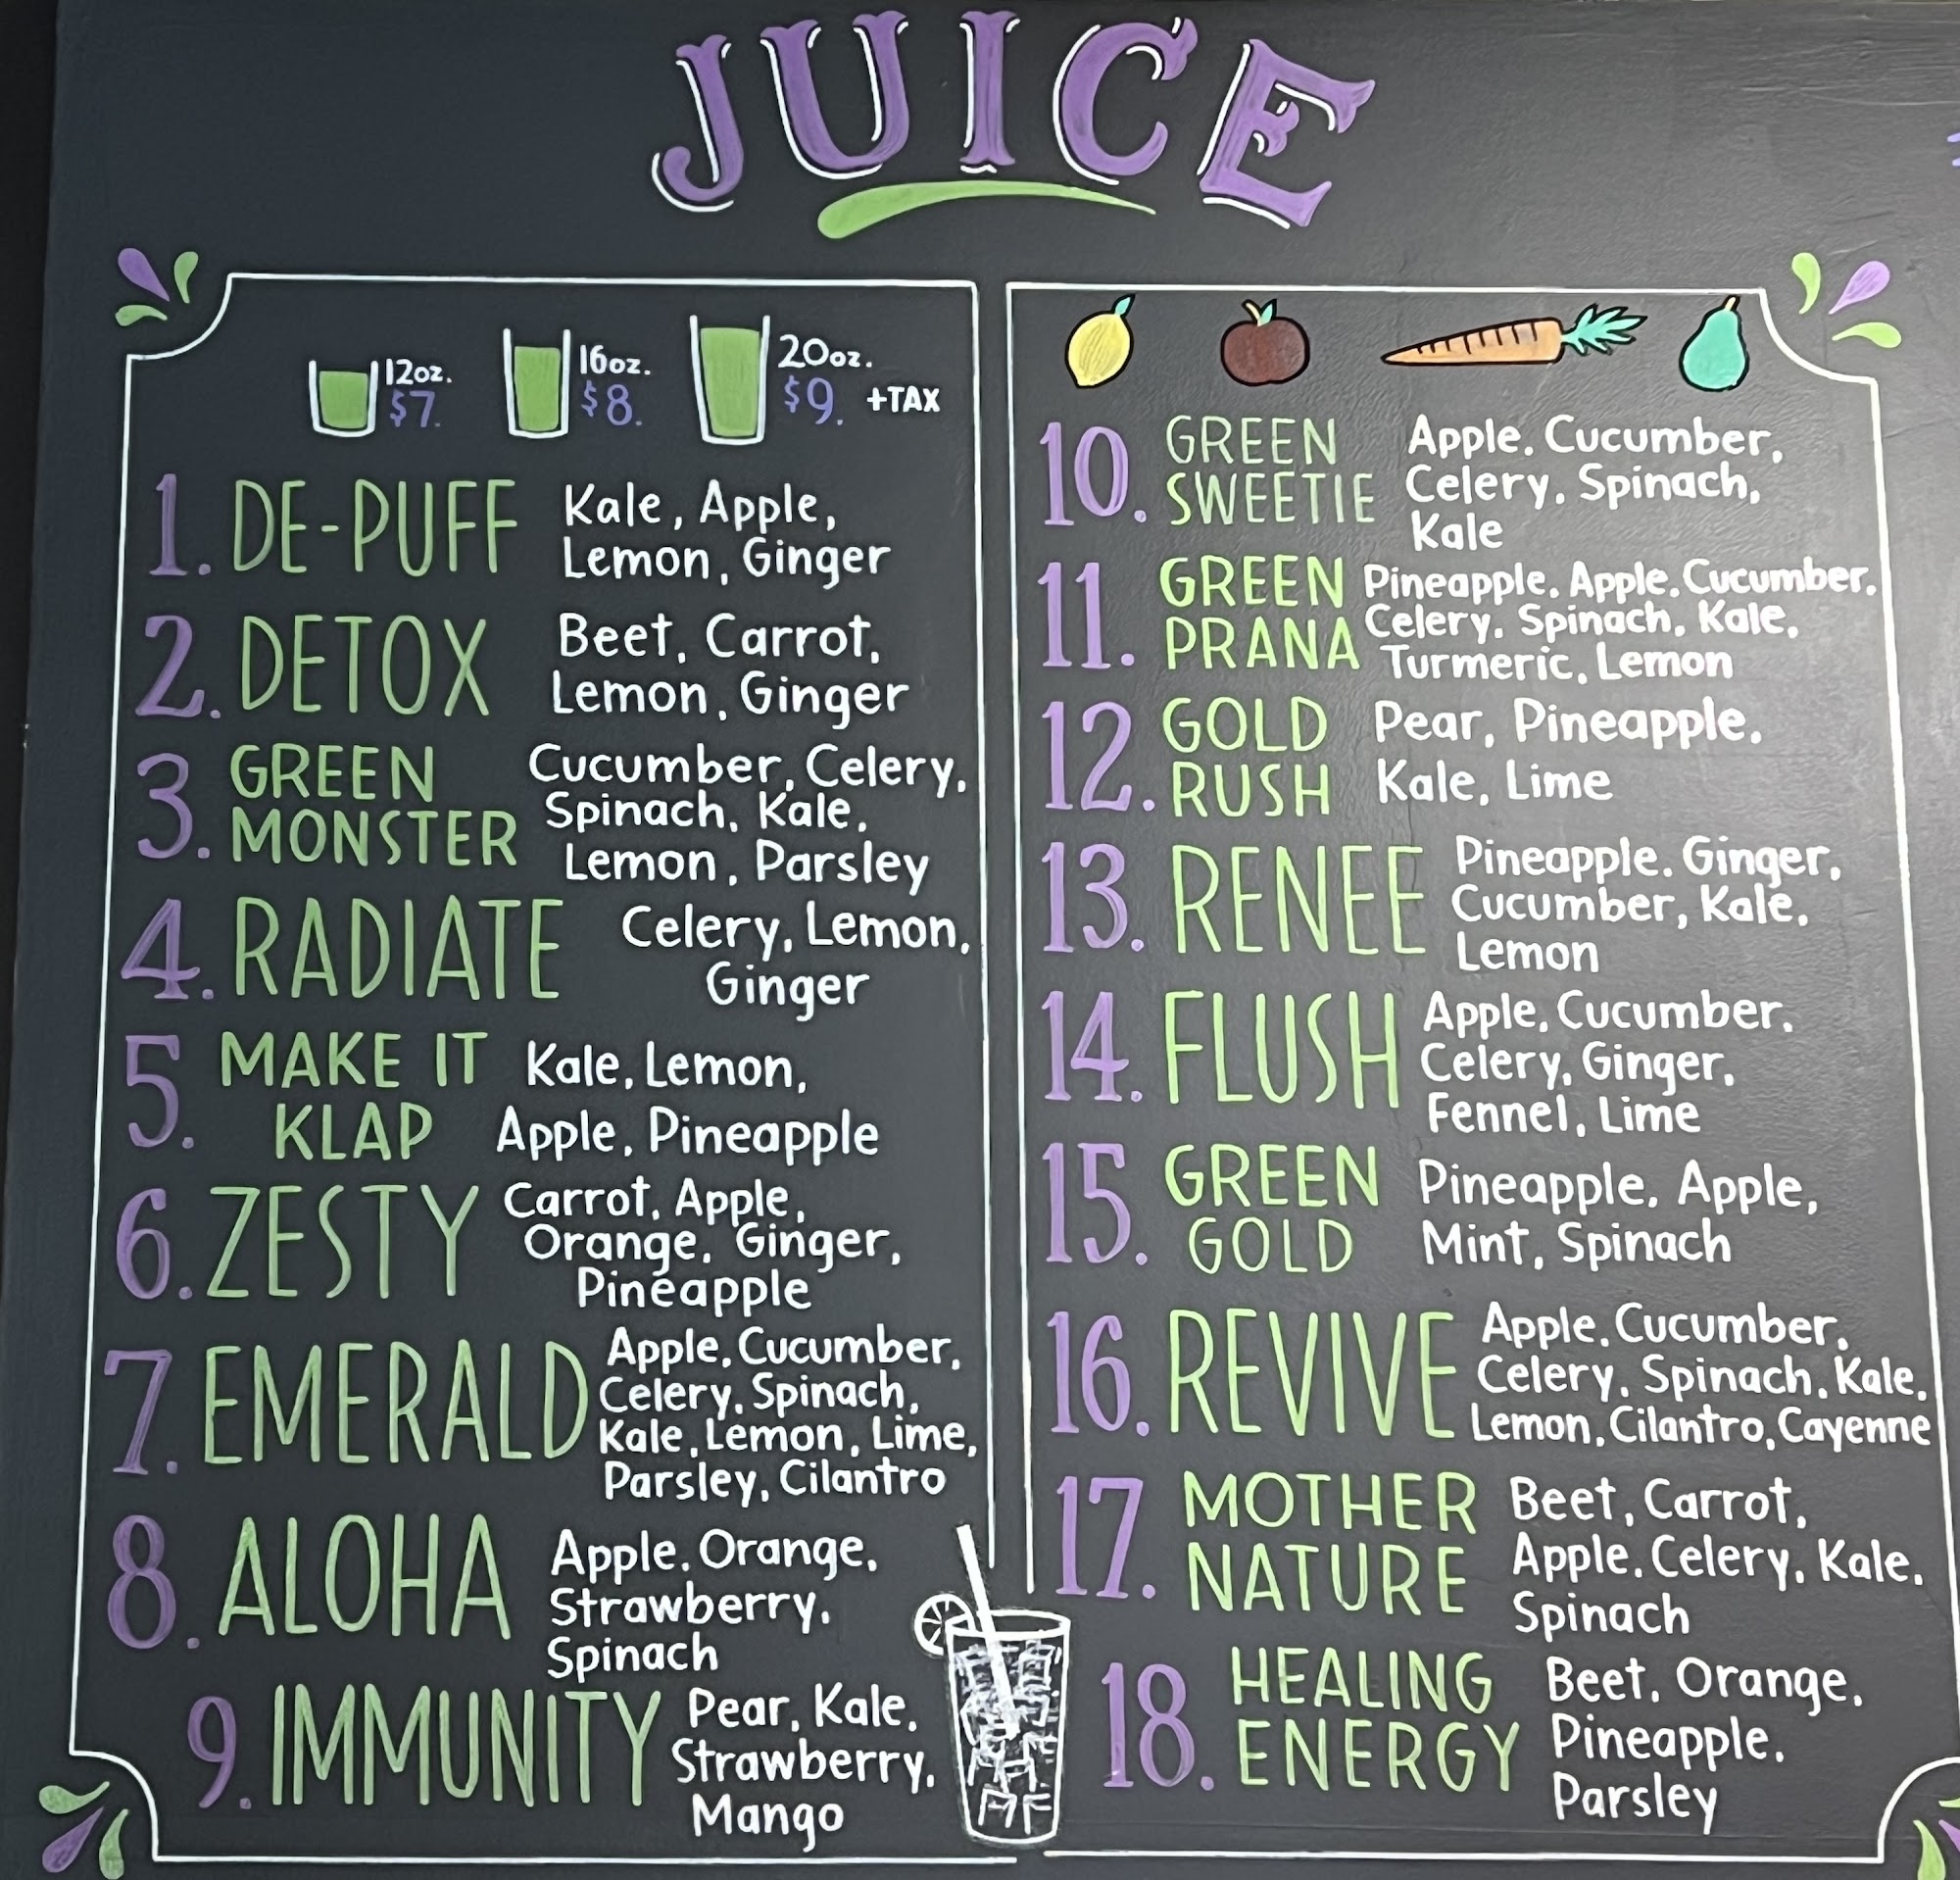 JUICE
12oz. 16oz. 20oz.
$7. $8. $9. +TAX
1. DE-PUFF Kale, Apple,
Lemon, Ginger
2. DETOX Beet, Carrot,
Lemon, Ginger
3. GREEN MONSTER Cucumber, Celery,
Spinach, Kale,
Lemon, Parsley
4. RADIATE Celery, Lemon,
Ginger
5. MAKE IT Kale, Lemon,
KLAP Apple, Pineapple
6. ZESTY Carrot, Apple,
Orange, Ginger,
Pineapple
7. EMERALD Apple, Cucumber,
Celery, Spinach,
Kale, Lemon, Lime,
Parsley, Cilantro
8. ALOHA Apple, Orange,
Strawberry,
Spinach
9. IMMUNITY Pear, Kale,
Strawberry,
Mango
10. GREEN SWEETIE Apple, Cucumber,
Celery, Spinach,
Kale
11. GREEN PRANA Pineapple, Apple, Cucumber,
Celery, Spinach, Kale,
Turmeric, Lemon
12. GOLD Pear, Pineapple,
RUSH Kale, Lime
13. RENEE Pineapple, Ginger,
Cucumber, Kale,
Lemon
14. FLUSH Apple, Cucumber,
Celery, Ginger,
Fennel, Lime
15. GREEN Pineapple, Apple,
GOLD Mint, Spinach
16. REVIVE Apple, Cucumber,
Celery, Spinach, Kale,
Lemon, Cilantro, Cayenne
17. MOTHER Beet, Carrot,
NATURE Apple, Celery, Kale,
Spinach
18. HEALING Beet, Orange,
ENERGY Pineapple,
Parsley